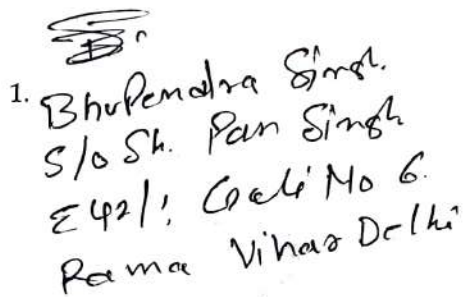 1.
Bhupendra Singh.
S/o Sh. Pan Singh
E42/1, Gali No 6.
Rama Vihar Delhi